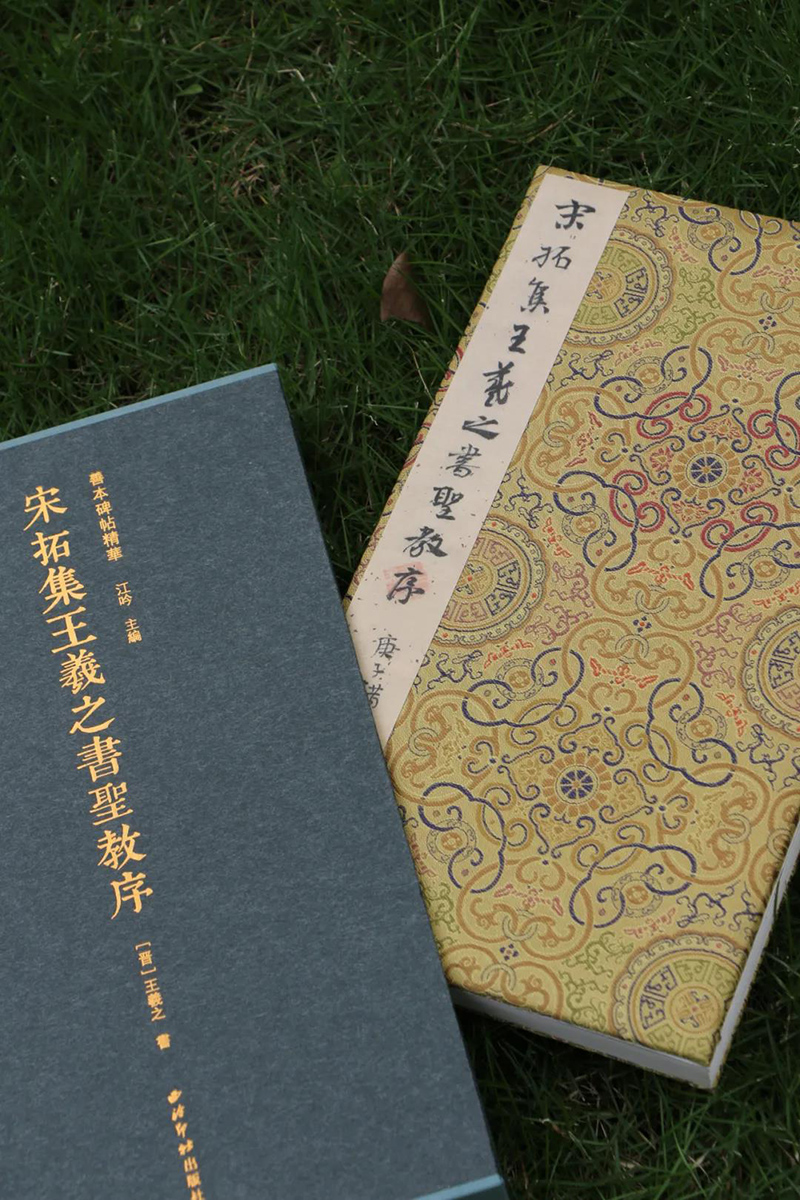 善本碑帖精華 江吟 主編
宋拓集王羲之書聖教序
[晋]王羲之 書
西泠印社出版社
宋拓集王羲之書聖教序
庚子